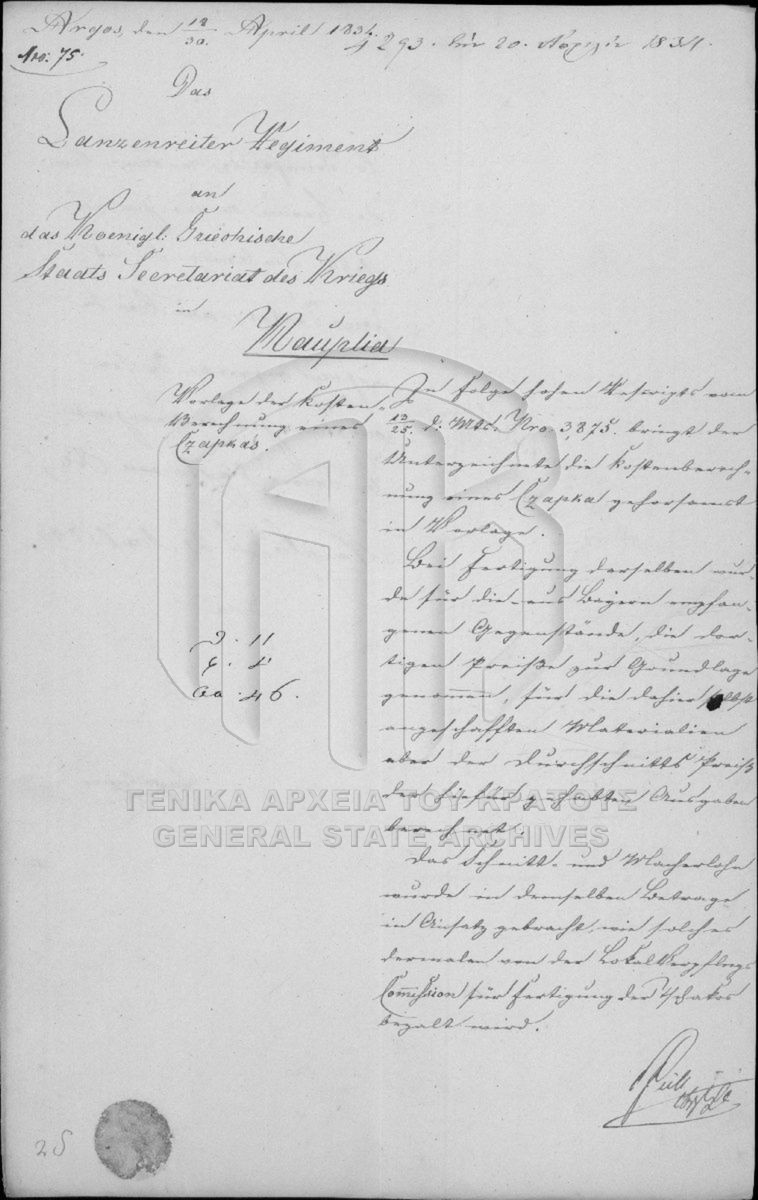 Argos, den 18/30. April 1834.
293. τὴν 20. Ἀπριλίου 1834.
Nro: 75.
Das
Lanzenreiter Regiment
an
das Koenigl: Griechische
Staats Secretariat des Kriegs
in
Nauplia
Vorlage der Kosten-
Berechnung eines
Czapkas.
In Folge hohen Rescripts vom
13/25. d: Mts. Nro. 3,875. bringt der
Unterzeichnete die Kostenberech-
nung eines Czapka gehorsamst
in Vorlage.
Bei Fertigung derselben wur-
de für die aus Bayern empfan-
genen Gegenstände, die dor-
tigen Preiße zur Grundlage
genommen, für die dahier selbst
angeschafften Materialien
aber der Durchschnitts Preiß
der hiefür gehabten Ausgaben
berechnet.
Das Schnitt- und Macherlohn
wurde in demselben Betrage
in Ansatz gebracht, wie solches
dermalen von der Lokal Verpflegs
Commission für Fertigung der Tschakos
bezalt wird.
11
4
46.
28
ΓΕΝΙΚΑ ΑΡΧΕΙΑ ΤΟΥ ΚΡΑΤΟΥΣ
GENERAL STATE ARCHIVES